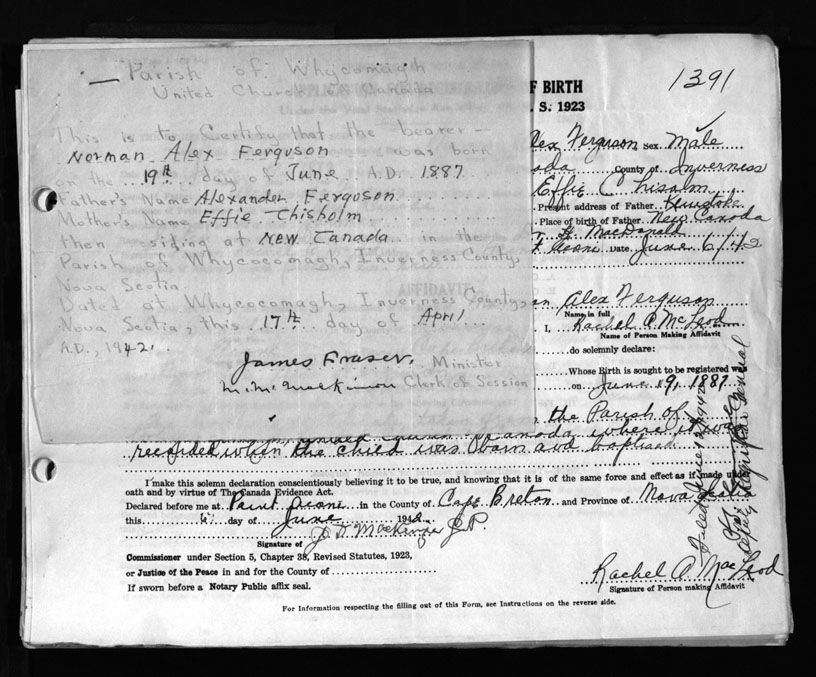 Parish of Whycomagh
United Church of Canada
This is to Certify that the bearer —
Norman Alex Ferguson was born
on the 19th day of June A.D. 1887
Father's Name Alexander Ferguson
Mother's Name Effie Chisholm
then residing at New Canada in the
Parish of Whycocomagh, Inverness County,
Nova Scotia
Dated at Whycocomagh, Inverness County,
Nova Scotia, this 17th day of April
A.D., 1942.
James Fraser, Minister
Clerk of Session
1391
F BIRTH
S. 1923
lex Ferguson Sex. Male
County of Inverness
Effie Chisolm
Present address of Father.
Place of birth of Father. New Canada
H. MacDonald
Date June 6/42
Alex Ferguson
Name in full
I, Rachel A McLeod
Name of Person Making Affidavit
do solemnly declare:
Whose Birth is sought to be registered was
on June 19, 1887.
AFFIDAVIT
the Parish of
United Church of Canada where it was
recorded when the child was born and baptised
I make this solemn declaration conscientiously believing it to be true, and knowing that it is of the same force and effect as if made under
oath and by virtue of The Canada Evidence Act.
Declared before me at in the County of Cape Breton and Province of Nova Scotia
this 6 day of June 1942
J. D. MacKenzie J.P.
Signature of
Commissioner under Section 5, Chapter 38, Revised Statutes, 1923,
or Justice of the Peace in and for the County of
If sworn before a Notary Public affix seal.
Rachel A. MacLeod
Signature of Person making Affidavit
For Information respecting the filling out of this Form, see Instructions on the reverse side.
Filed June 1942
Deputy Registrar General